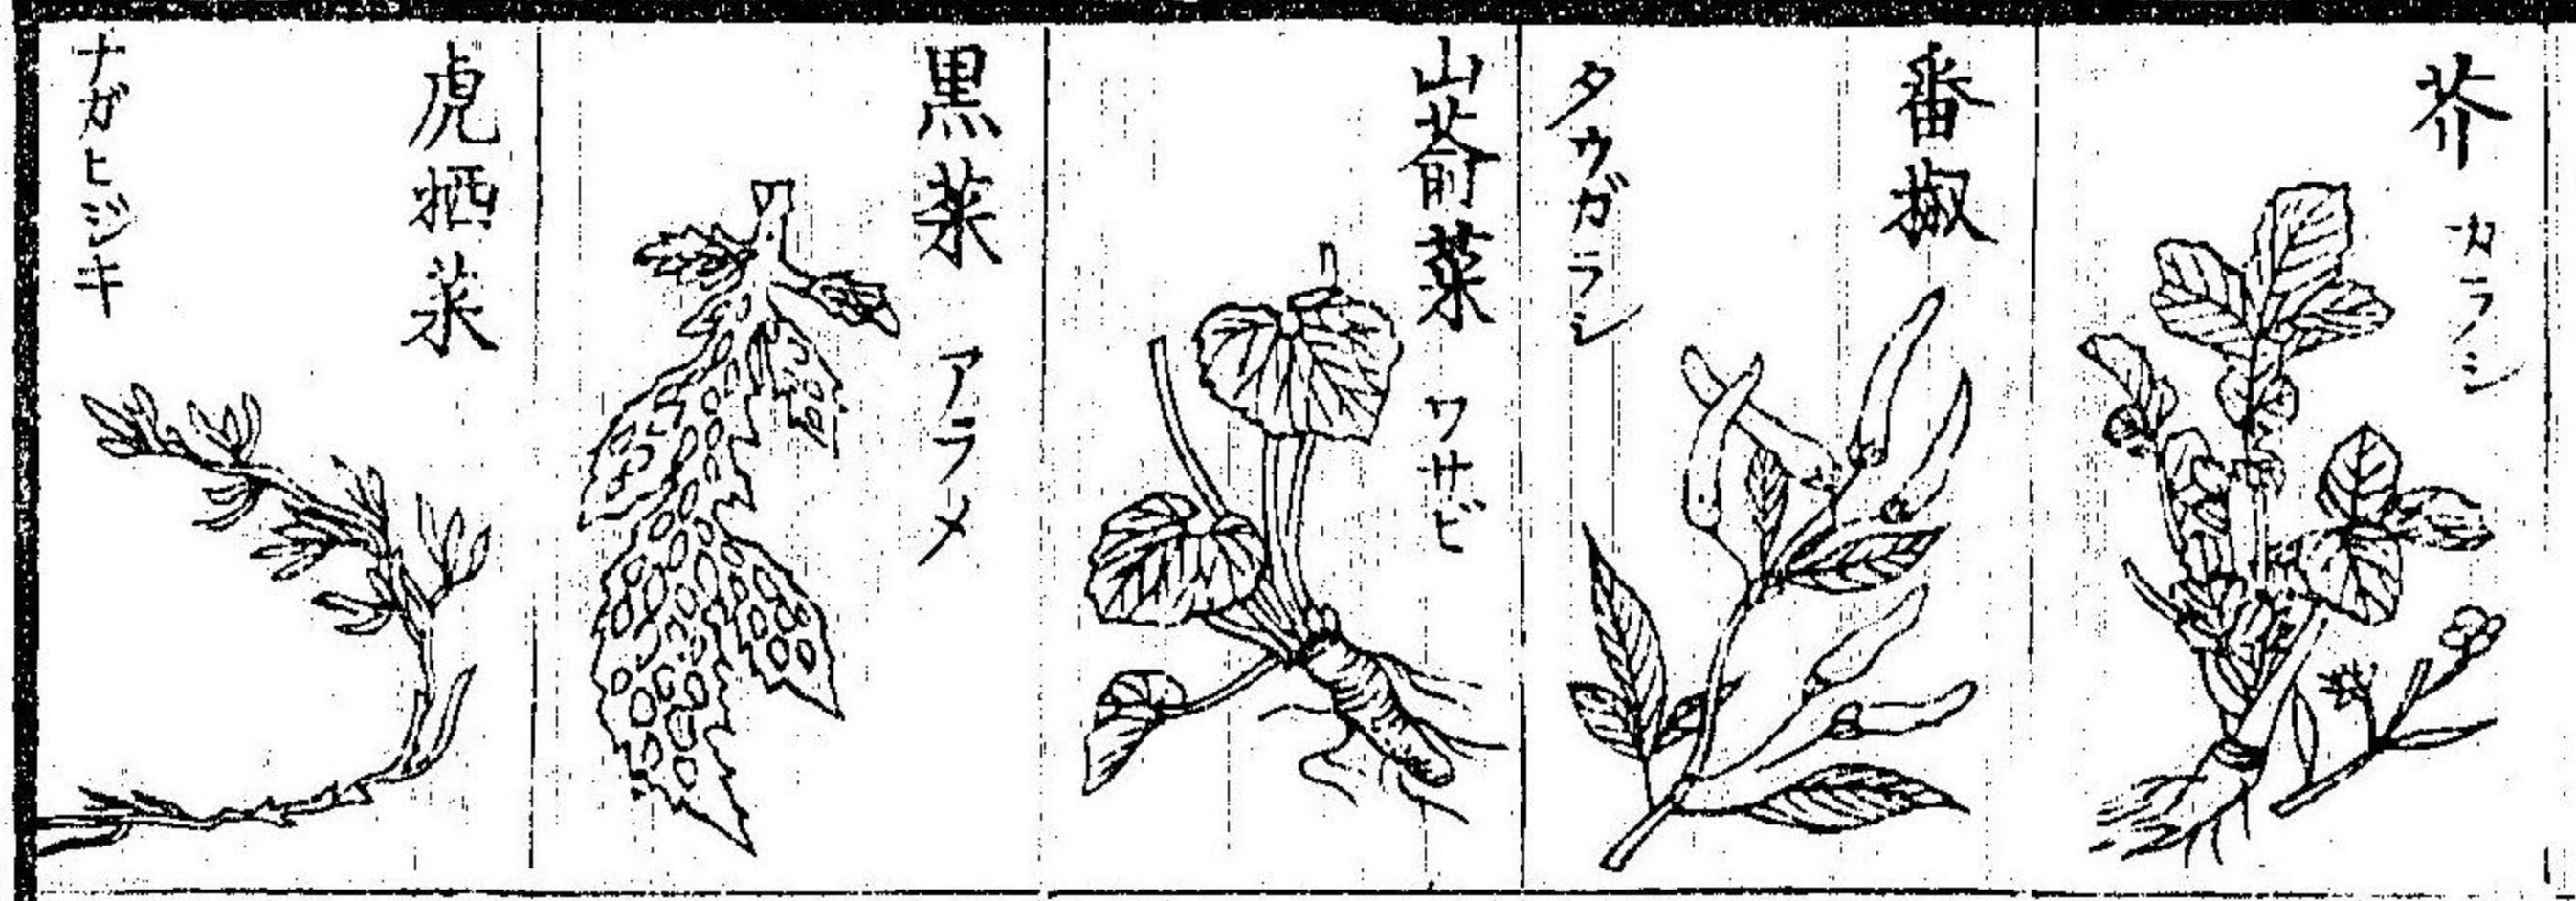 芥 カラシ
番椒
タウガラシ
山萮菜 ワサビ
黒菜 アラメ
虎栖菜
ナガヒジキ